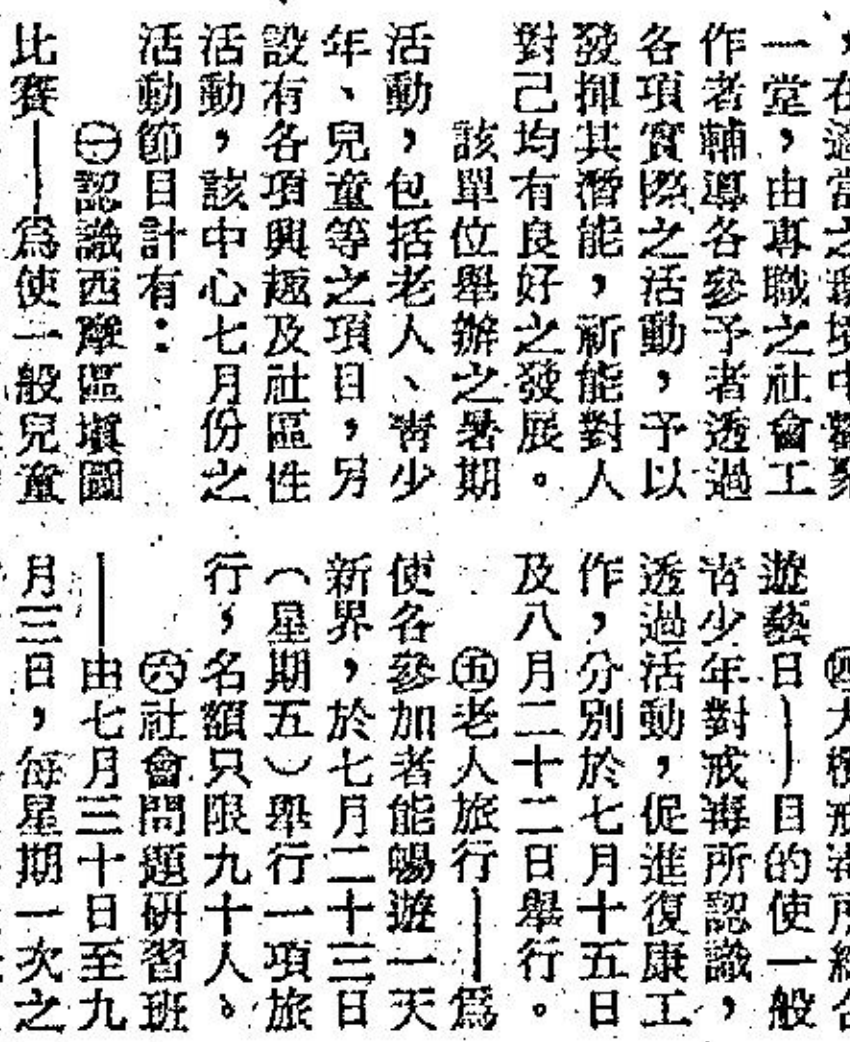 在適當之環境中歡聚
一堂，由專職之社會工
作者輔導各參予者透過
各項實際之活動，予以
發揮其潛能，祈能對人
對己均有良好之發展。
該單位舉辦之暑期
活動，包括老人、靑少
年、兒童等之項目，另
設有各項興趣及社區性
活動，該中心七月份之
活動節目計有：
㊀認識西摩區塡圖
比賽——爲使一般兒童
㊃大欖戒毒所綜合
遊藝日——目的使一般
靑少年對戒毒所認識，
透過活動，促進復康工
作，分別於七月十五日
及八月二十二日舉行。
㊄老人旅行——爲
使各參加者能暢遊一天
新界，於七月二十三日
（星期五）舉行一項旅
行，名額只限九十人。
㊅社會問題硏習班
——由七月三十日至九
月三日，每星期一次之